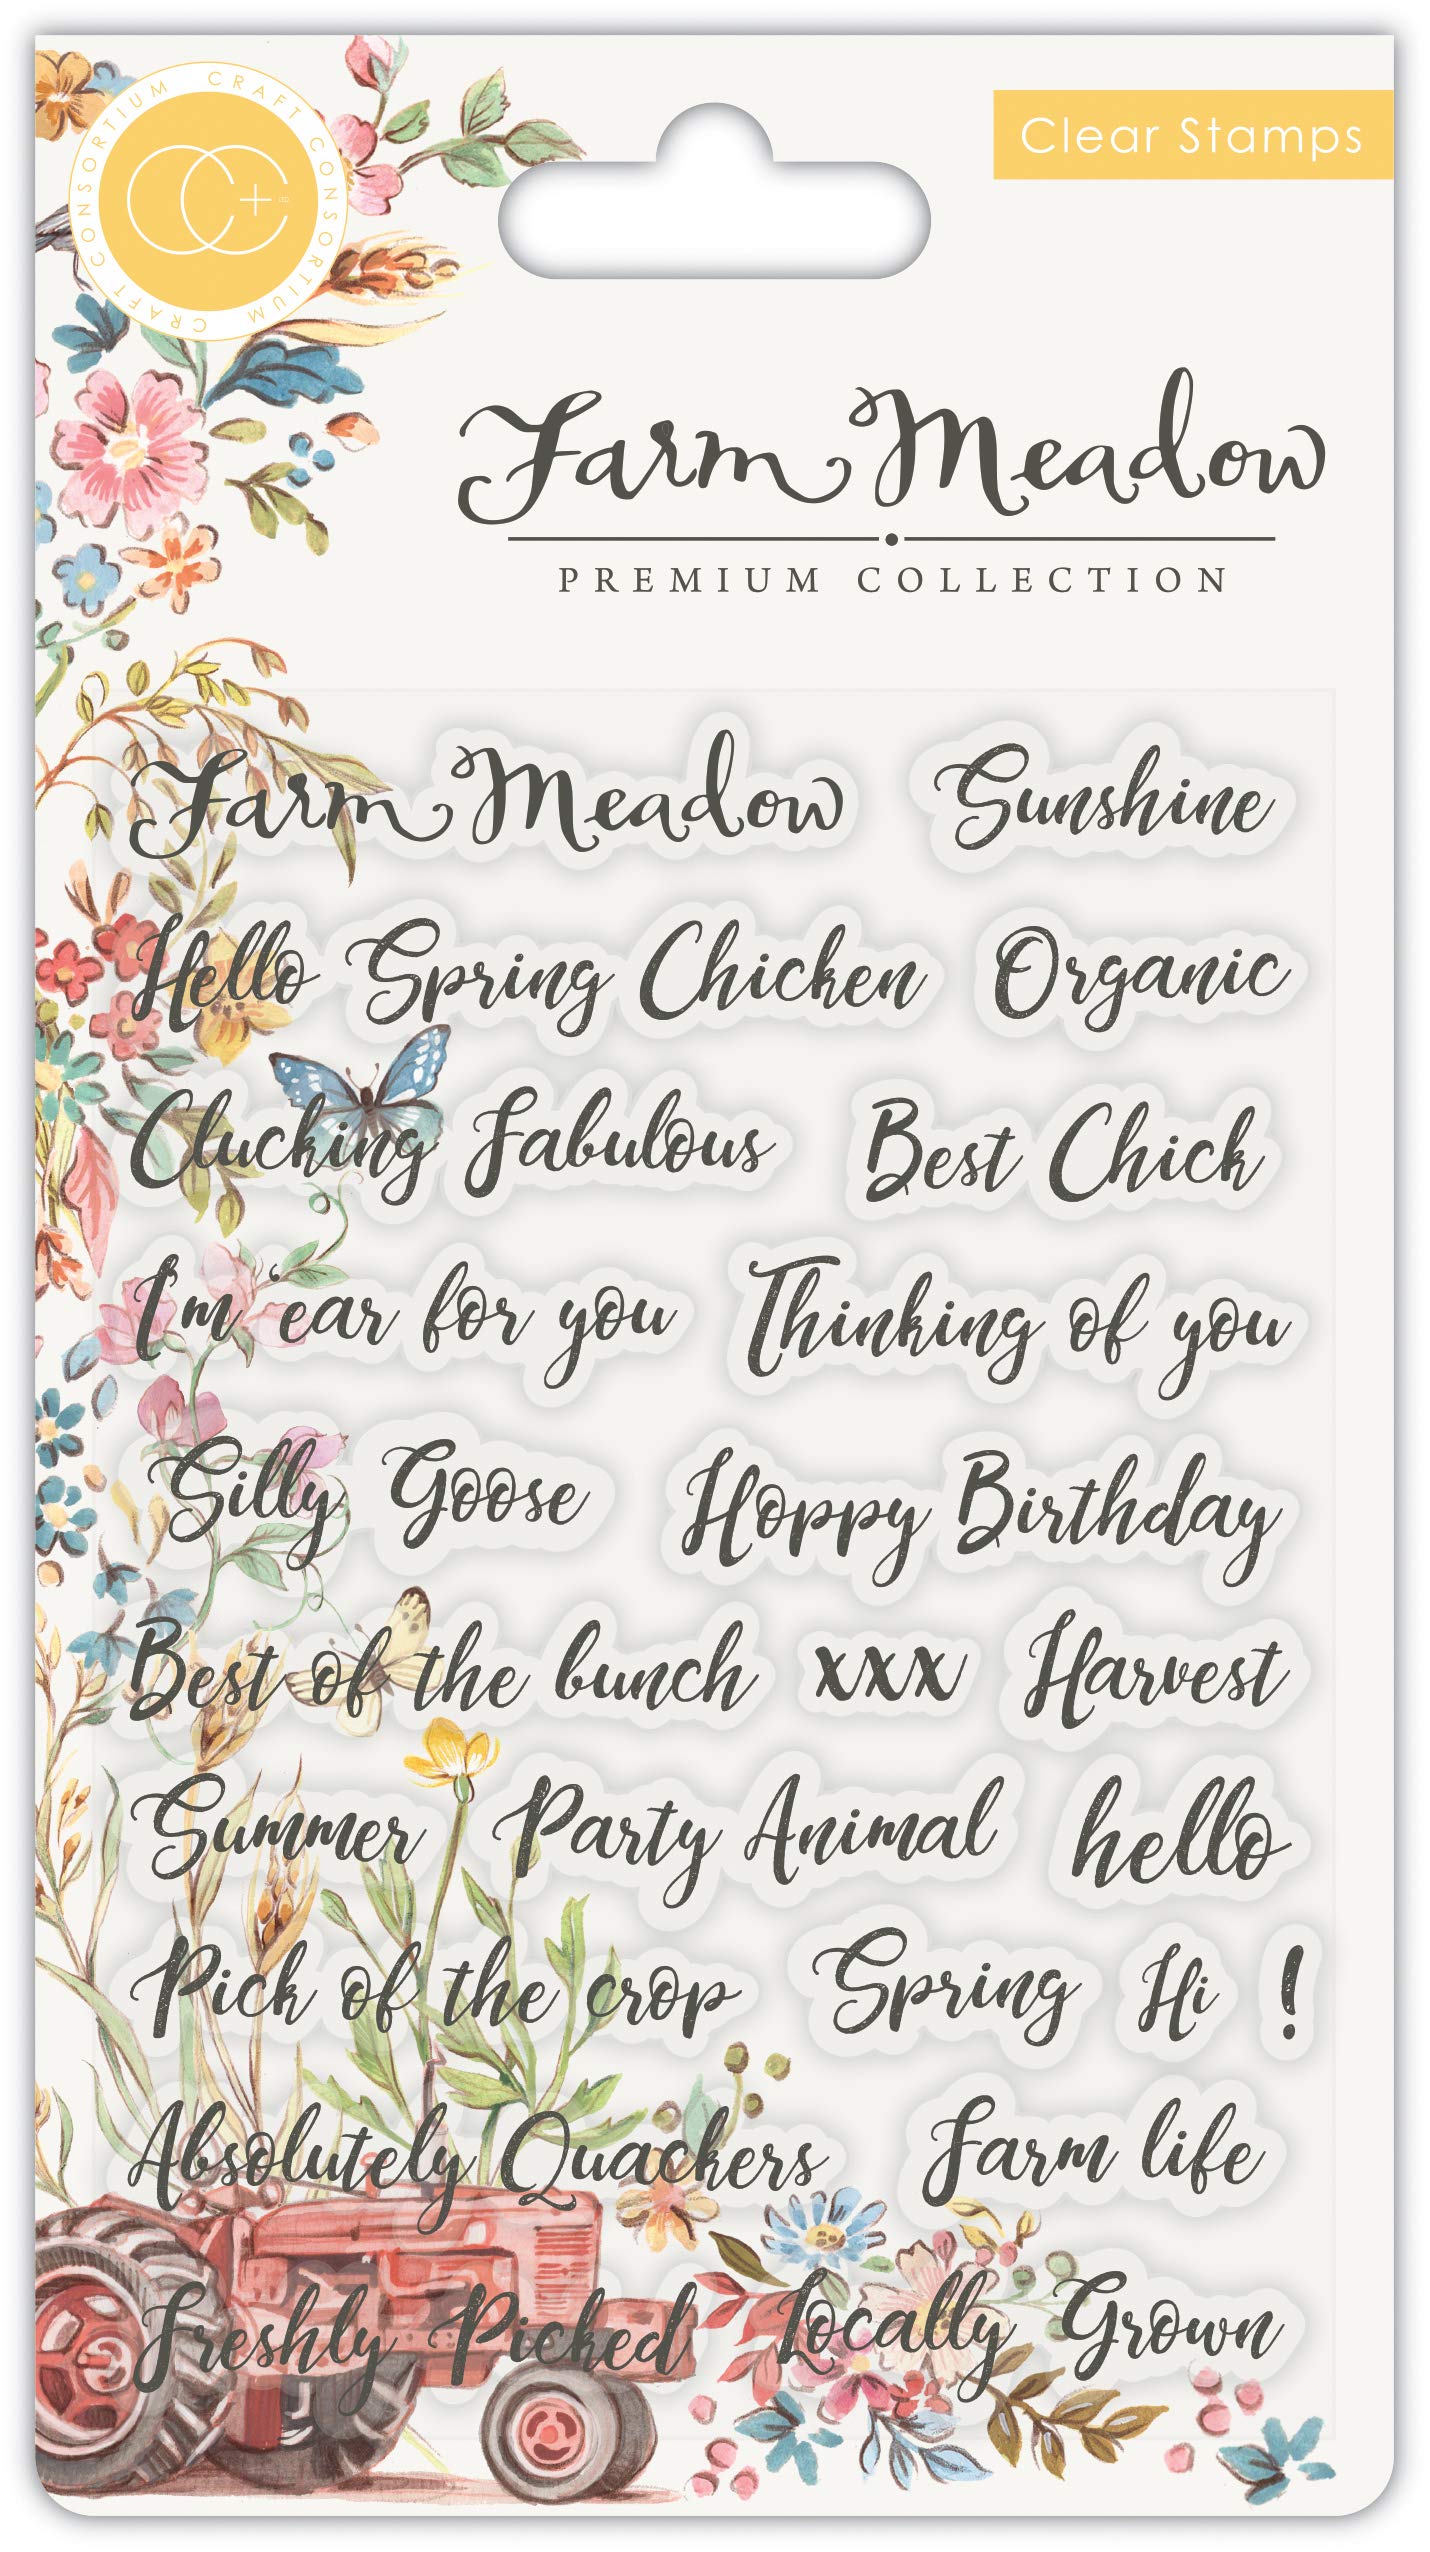 CRAFT CONSORTIUM CRAFT CONSORTIUM
CC+ LTD
Clear Stamps
Farm Meadow
PREMIUM COLLECTION
Farm Meadow Sunshine
Hello Spring Chicken Organic
Clucking Fabulous Best Chick
I'm 'ear for you Thinking of you
Silly Goose Hoppy Birthday
Best of the bunch xxx Harvest
Summer Party Animal hello
Pick of the crop Spring Hi !
Absolutely Quackers Farm life
Freshly Picked Locally Grown